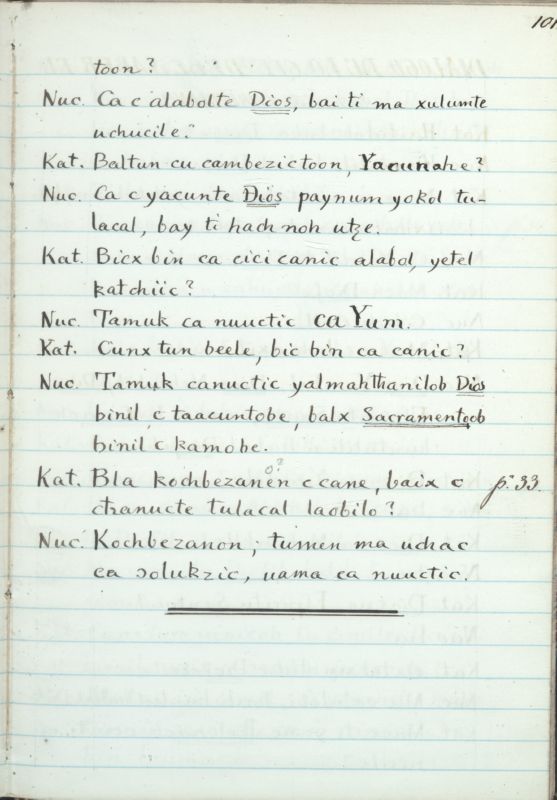 101
toon?
Nuc. Ca c alabolte Dios, bai ti ma xulumte
uchucile.
Kat. Baltun cu cambezictoon, Yacunahe?
Nuc. Ca c yacunte Dios paynum yokol tu-
lacal, bay ti hach noh utze.
Kat. Bicx bin ca cici canic alabol, yetel
katchiic?
Nuc. Tamuk ca nuuctic ca Yum.
Kat. Cunx tun beele, bic bin ca canic?
Nuc. Tamuk canuctic yalmahthanilob Dios
binil c taacuntobe, balx Sacramentoob
binil c kamobe.
o?
Kat. Bla kochbezanen c cane, baix c p. 33.
chanucte tulacal laobilo?
Nuc. Kochbezanon; tumen ma uchac
ca ɔolukzic, uama ca nuuctic.